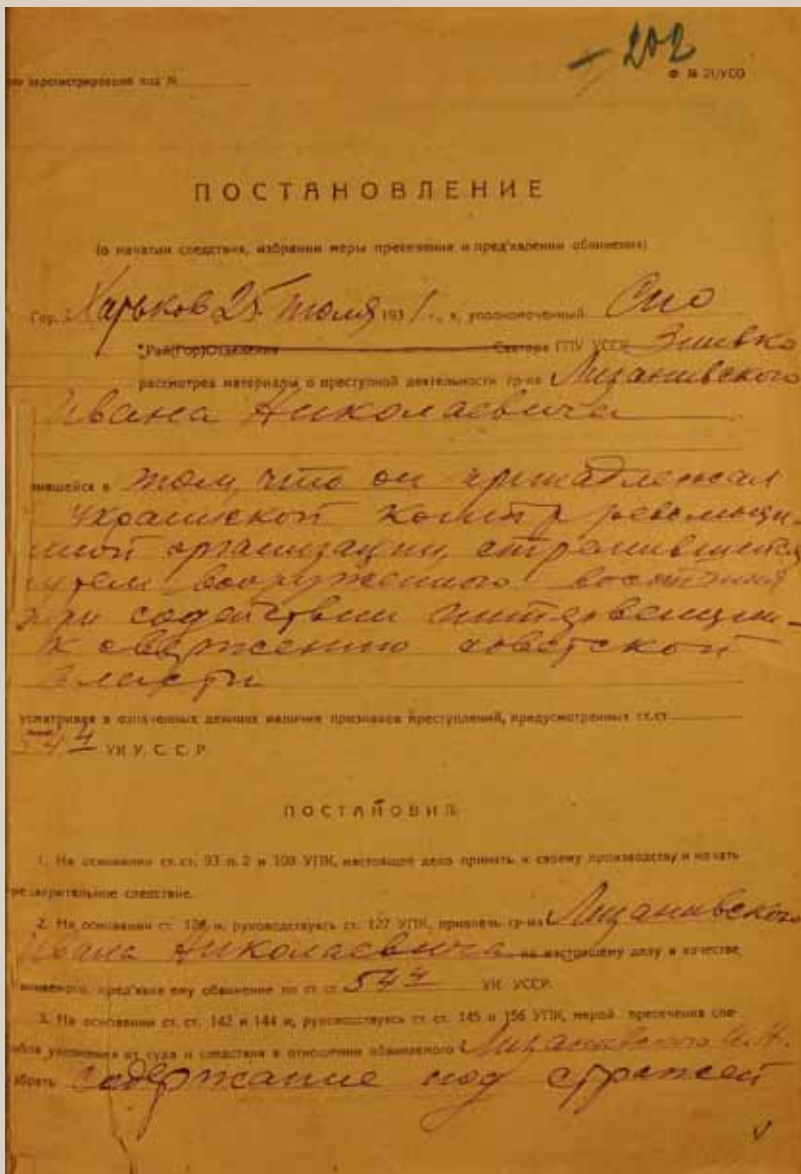 – 202
зарегистрирован под №
Ф № 21/УСО
ПОСТАНОВЛЕНИЕ
(о начатии следствия, избрании меры пресечения и пред'явлении обвинения)
Гор. Харьков 25 июля 1931 г., я, уполномоченный СПО
Рай(Гор)Отделения Сектора ГПУ УССР
рассмотрев материалы о преступной деятельности гр-на Лизанивского
Ивана Николаевича
вившейся в том, что он принадлежал
украинской контрреволюци-
нной организации, стремившейся
путем вооруженного восстания
при содействии интервенции
к свержению советской
власти
усматривая в означенных деяниях наличие признаков преступлений, предусмотренных ст.ст.
54 4 УК У. С. С. Р.
ПОСТАНОВИЛ
1. На основании ст. ст. 93 п. 2 и 108 УПК, настоящее дело принять к своему производству и начать
предварительное следствие.
2. На основании ст. 126 и, руководствуясь ст. 127 УПК, привлечь гр-на Лизанивского
Ивана Николаевича по настоящему делу в качестве
обвиняемого, пред'явив ему обвинение по ст. ст. 54 4 УК УССР.
3. На основании ст. ст. 142 и 144 и, руководствуясь ст. ст. 145 и 156 УПК, мерой пресечения спо-
собов уклонения от суда и следствия в отношении обвиняемого Лизанивского И. Н.
избрать содержание под стражей